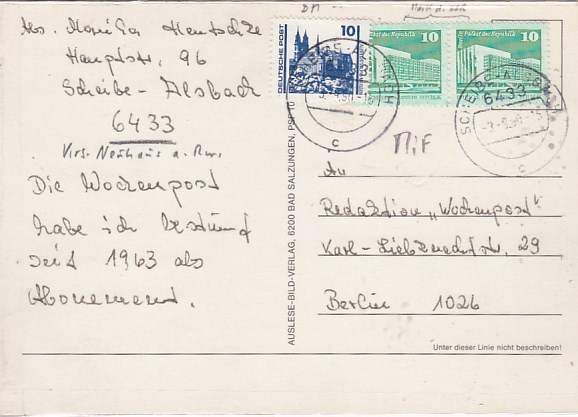 Abs. Monika Hentschke
Hauptstr. 96
Scheibe-Alsbach
6433
Krs. Neuhaus a. Rw.
Die Wochenpost
habe ich bestimmt
seit 1963 als
Abonnement.
AUSLESE-BILD-VERLAG, 6200 BAD SALZUNGEN, PSF 10
DM
DEUTSCHE POST
10
Palast der Republik
10
Palast der Republik
10
6433
c
SCHEIBE-ALSBACH
6433
c
MiF
An
Redaktion „Wochenpost“
Karl-Liebknechtstr. 29
Berlin 1026
Unter dieser Linie nicht beschreiben!